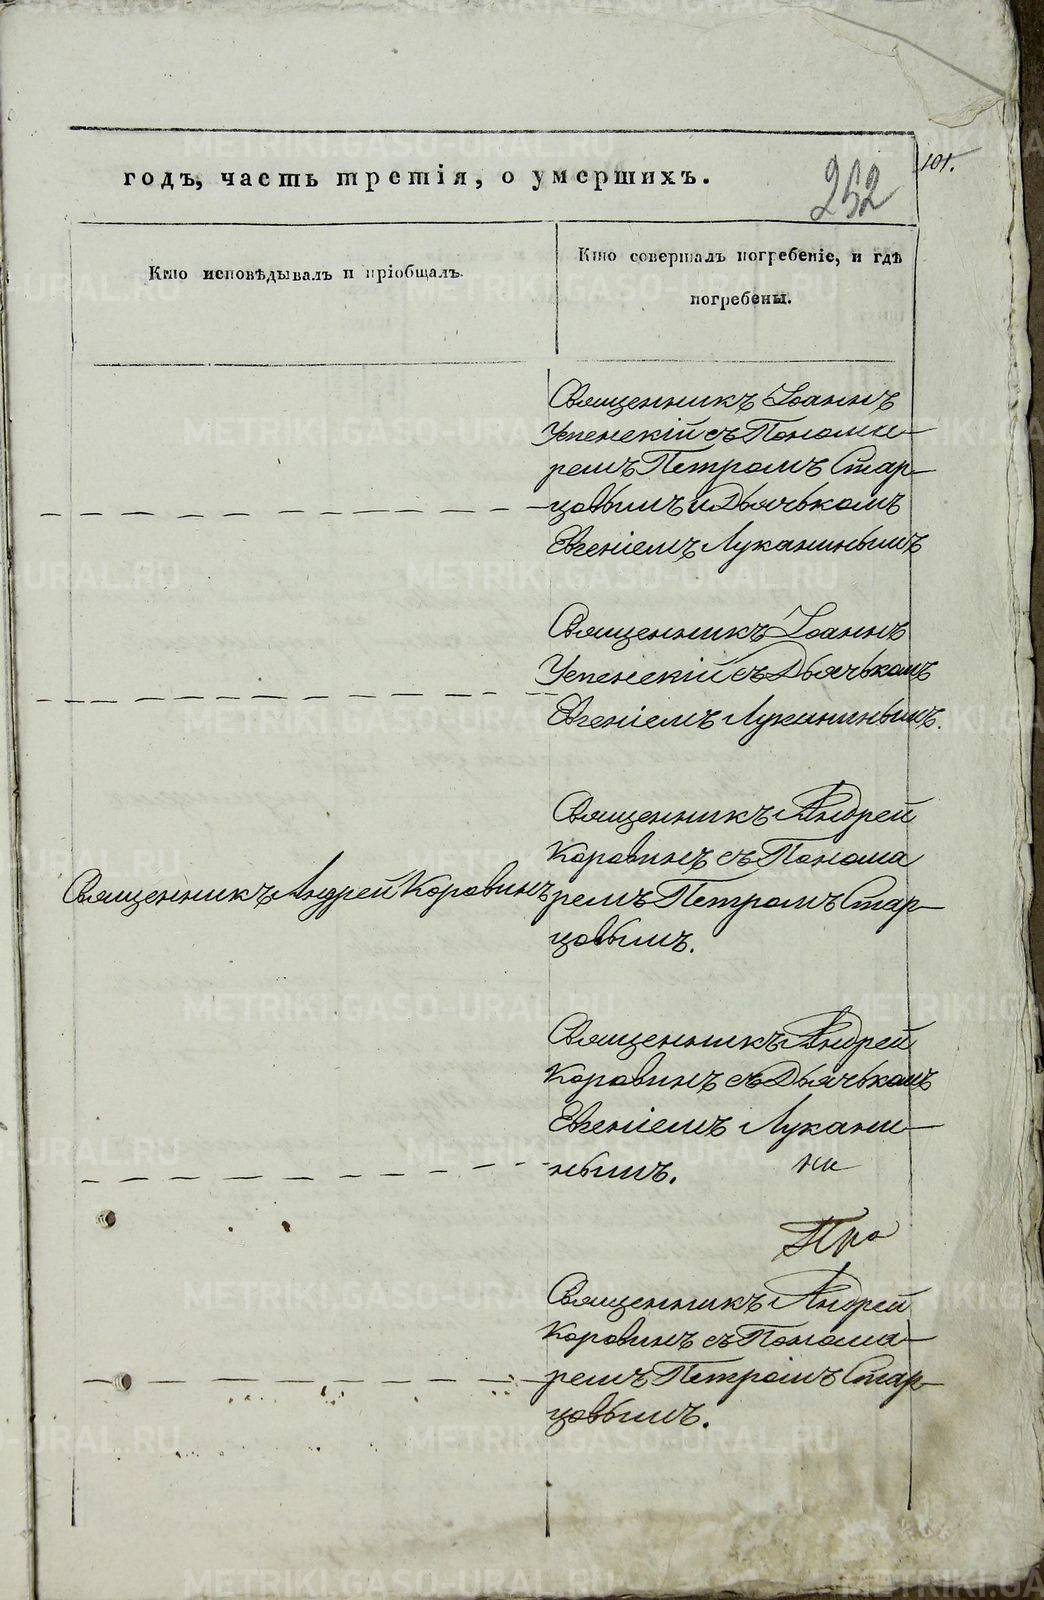 101.
годъ, часть третія, о умершихъ.
252
Кто исповѣдывалъ и пріобщалъ.
Кто совершалъ погребеніе, и гдѣ
погребены.
Священникъ Іоаннъ
Успенскій съ Понома-
ремъ Петромъ Стар-
цовымъ и Дьячькомъ
Евгеніемъ Луканинымъ
Священникъ Іоаннъ
Успенскій съ Дьячькомъ
Евгеніемъ Луканинымъ.
Священникъ Андрей
Коровинъ съ Понома
Священникъ Андрей Коровинъ
ремъ Петромъ Стар-
цовымъ.
Священникъ Андрей
Коровинъ съ Дьячькомъ
Евгеніемъ Лукани-
нымъ.
Про
Священникъ Андрей
Коровинъ съ Понома-
ремъ Петромъ Стар-
цовымъ.
METRIKI.GASO-URAL.RU